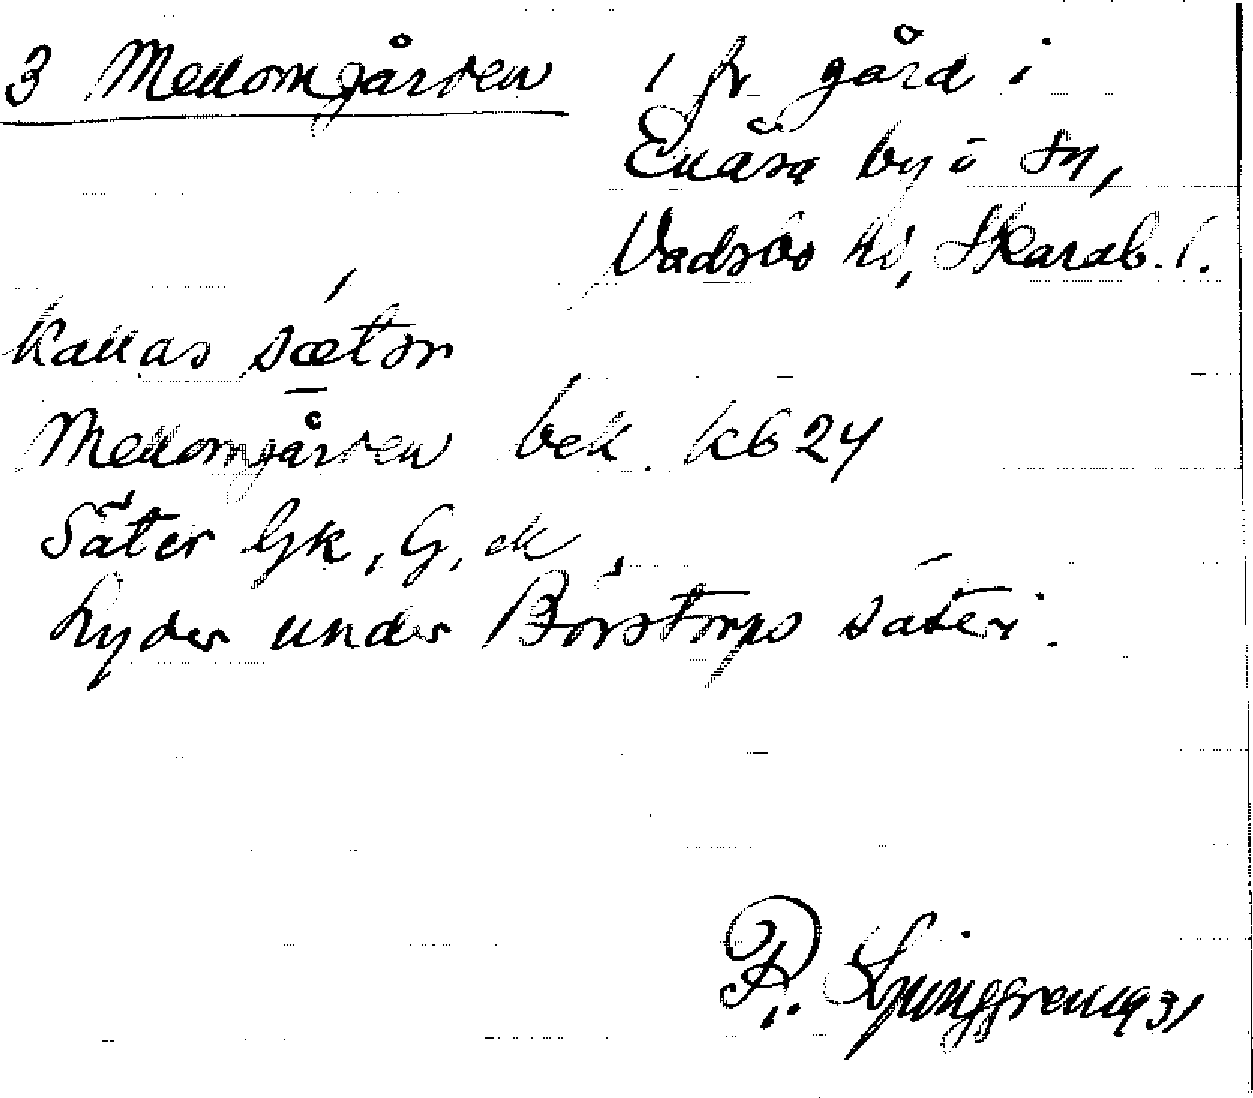 3 Mellomgården 1 fr gård i
Enåsa by o sn,
Vadsbo hd, Skarab. l.
kallas sætər
Mellomgården bek. Kb 24
Säter Gk, G, ek
Lyder under Börstorps säteri.
R. Ljunggren 1931